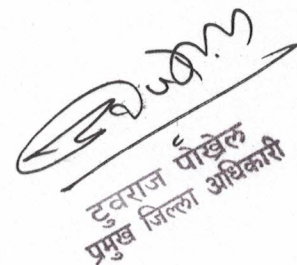 टुवराज पोखेल
प्रमुख जिल्ला अधिकारी